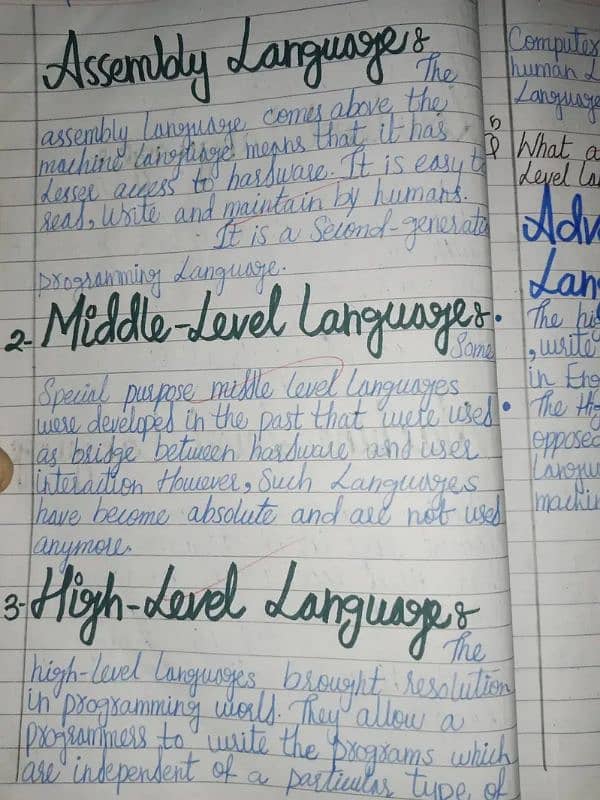 Assembly Languages
The
assembly language comes above the
machine language means that it has
Lesser access to hardware. It is easy t
read, write and maintain by humans.
It is a Second-generati
programming Language.
2- Middle-Level Languages.
Some
Special purpose middle level languages
were developed in the past that were used
as bridge between hardware and user
interaction However, Such Languages
have become absolute and are not used
anymore.
3- High-Level Languages
The
high-level languages brought resolution
in programming world. They allow a
programmers to write the programs which
are independent of a particular type of
Computer
human L
Language
What a
Level La
Adv
Lan
The hi
, write
in Eng
• The Hig
opposed
Langu
machin